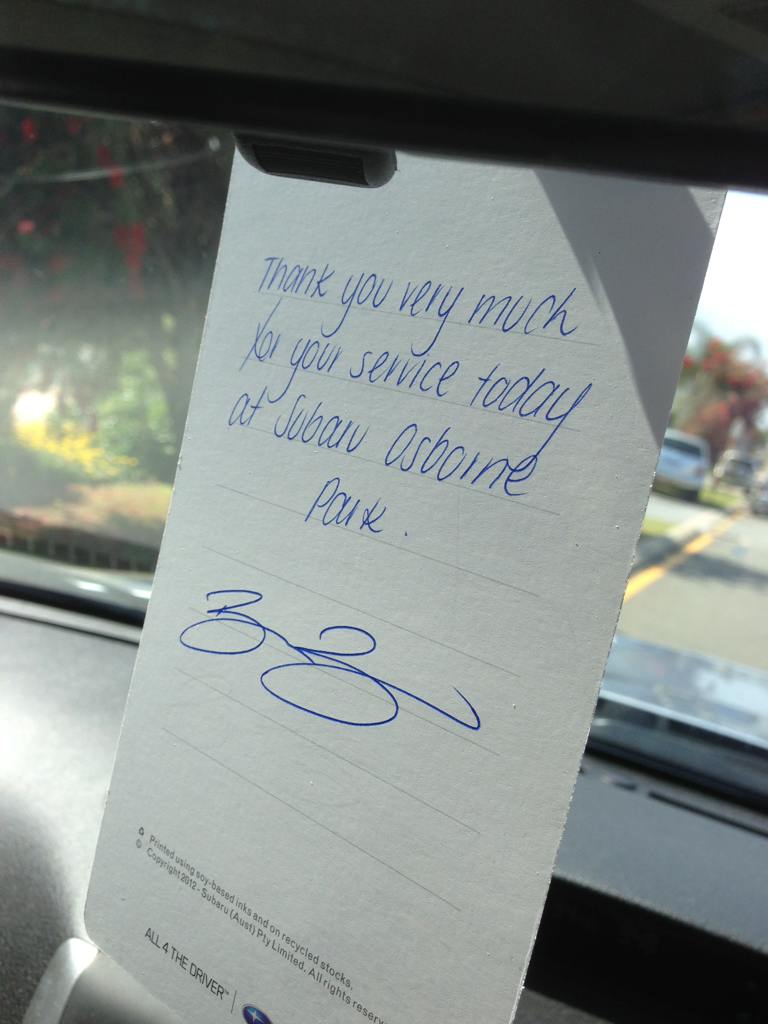 Thank you very much
for your service today
at Subaru Osborne
Park.
Printed using soy-based inks and on recycled stocks.
© Copyright 2012 - Subaru (Aust) Pty Limited. All rights reserv
ALL 4 THE DRIVER™